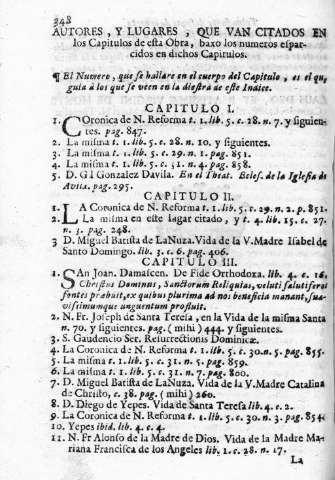 248
AUTORES, Y LUGARES, QUE VAN CITADOS EN
los Capitulos de esta Obra, baxo los numeros espar-
cidos en dichos Capitulos.
¶ El Numero, que se hallare en el cuerpo del Capitulo, es el que
guia à los que se veen en la diestra de este Indice.
CAPITULO I.
1. Coronica de N. Reforma t. 1. lib. 5. c. 28. n. 7. y siguien-
tes. pag. 847.
2. La misma t. 1. lib. 5. c. 28. n. 10. y siguientes.
3. La misma t. 1. lib. 5. c. 29. n. 1. pag. 851.
4. La misma t. 1. lib. 5. c. 31. n. 4. pag. 858.
5. D. Gil Gonzalez Davila. En el Theat. Ecles. de la Iglesia de
Avila. pag. 295.
CAPITULO II.
1. LA Coronica de N. Reforma t. 1. lib. 5. c. 29. n. 2. p. 851.
2. La misma en este lugar citado, y t. 4. lib. 15. c. 27.
n. 3. pag. 248.
3 D. Miguel Batista de LaNuza. Vida de la V. Madre Isabel de
Santo Domingo. lib. 3. c. 6. pag. 406.
CAPITULO III.
1. SAn Joan. Damascen. De Fide Orthodoxa. lib. 4. c. 16.
Christus Dominus, Sanctorum Reliquias, veluti salutiferos
fontes præbuit, ex quibus plurima ad nos beneficia manant, sua-
vissimumque unguentum profluit.
2. N. Fr. Joseph de Santa Teresa, en la Vida de la misma Santa
n. 70. y siguientes. pag. (mihi) 444. y siguientes.
3. S. Gaudencio Ser. Resurrectionis Dominicæ.
4. La Coronica de N. Reforma t. 1. lib. 5. c. 30. n. 5. pag. 855.
5. La misma t. 1. lib. 5. c. 31. n. 5. pag. 859.
6. La misma t. 1. lib. 5. c. 31. n. 7. pag. 860.
7. D. Miguel Batista de LaNuza. Vida de la V. Madre Catalina
de Christo, c. 38. pag. (mihi) 260.
8. D. Diego de Yepes. Vida de Santa Teresa lib. 4. c. 2.
9. La Coronica de N. Reforma t. 1. lib. 5. c. 30. n. 3. pag. 854.
10. Yepes ibid. lib. 4. c. 4.
11. N. Fr Alonso de la Madre de Dios. Vida de la Madre Ma-
riana Francisca de los Angeles lib. 1. c. 28. n. 17.
La